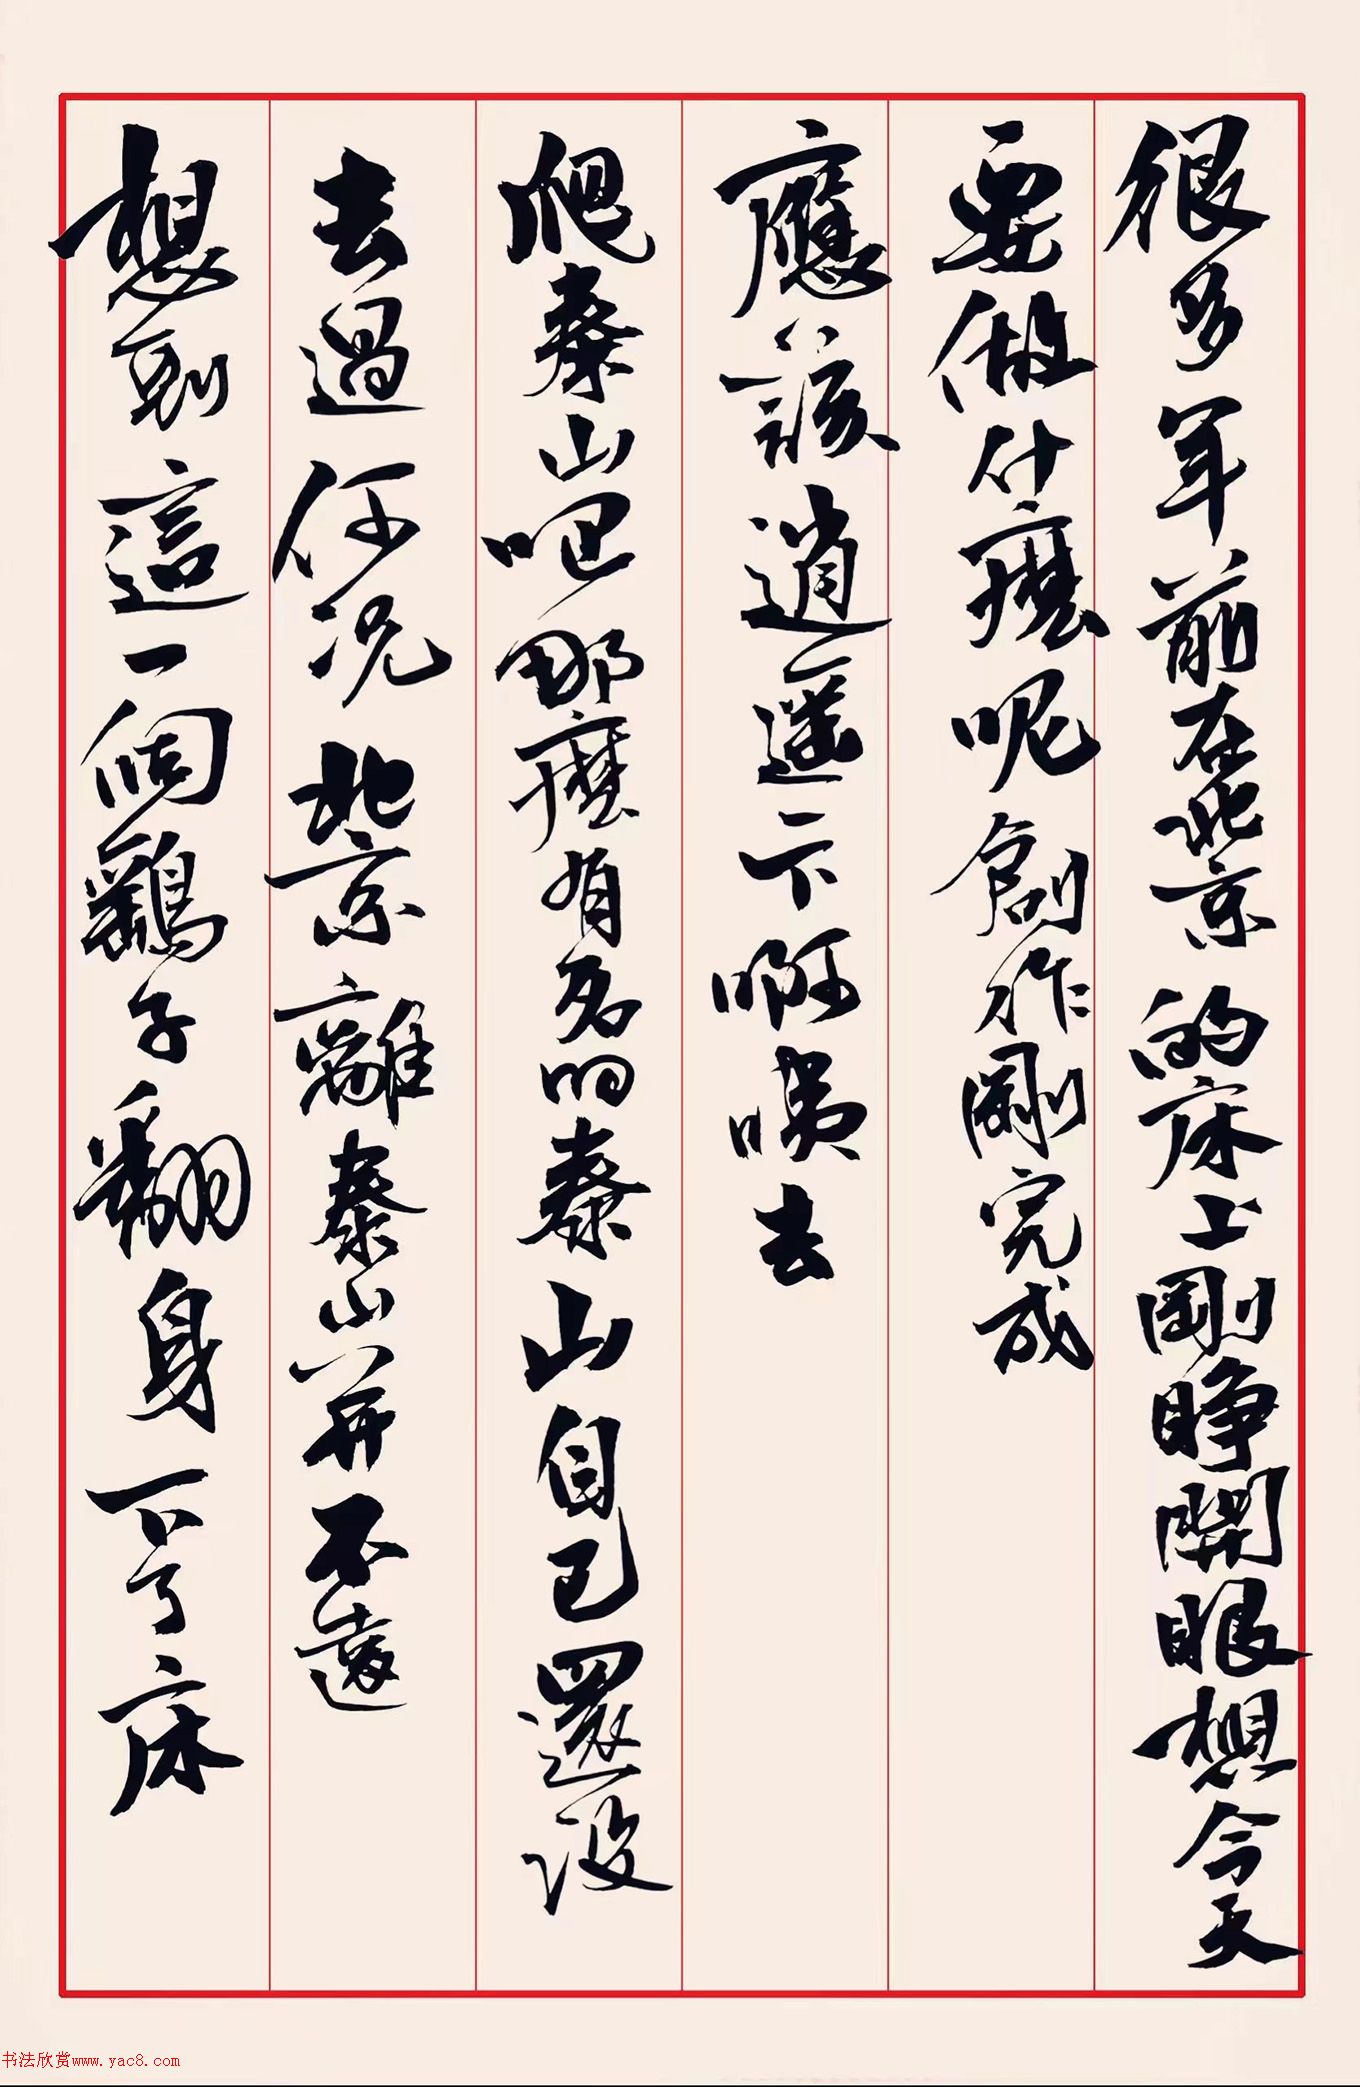 很多年前在北京的床上剛睁開眼想今天
要做什麼呢創作剛完成
應該逍遥一下啊咦去
爬泰山吧那麼有名的泰山自己還没
去過何况北京離泰山并不遠
想到這一個鷂子翻身下了床
书法欣赏www.yac8.com